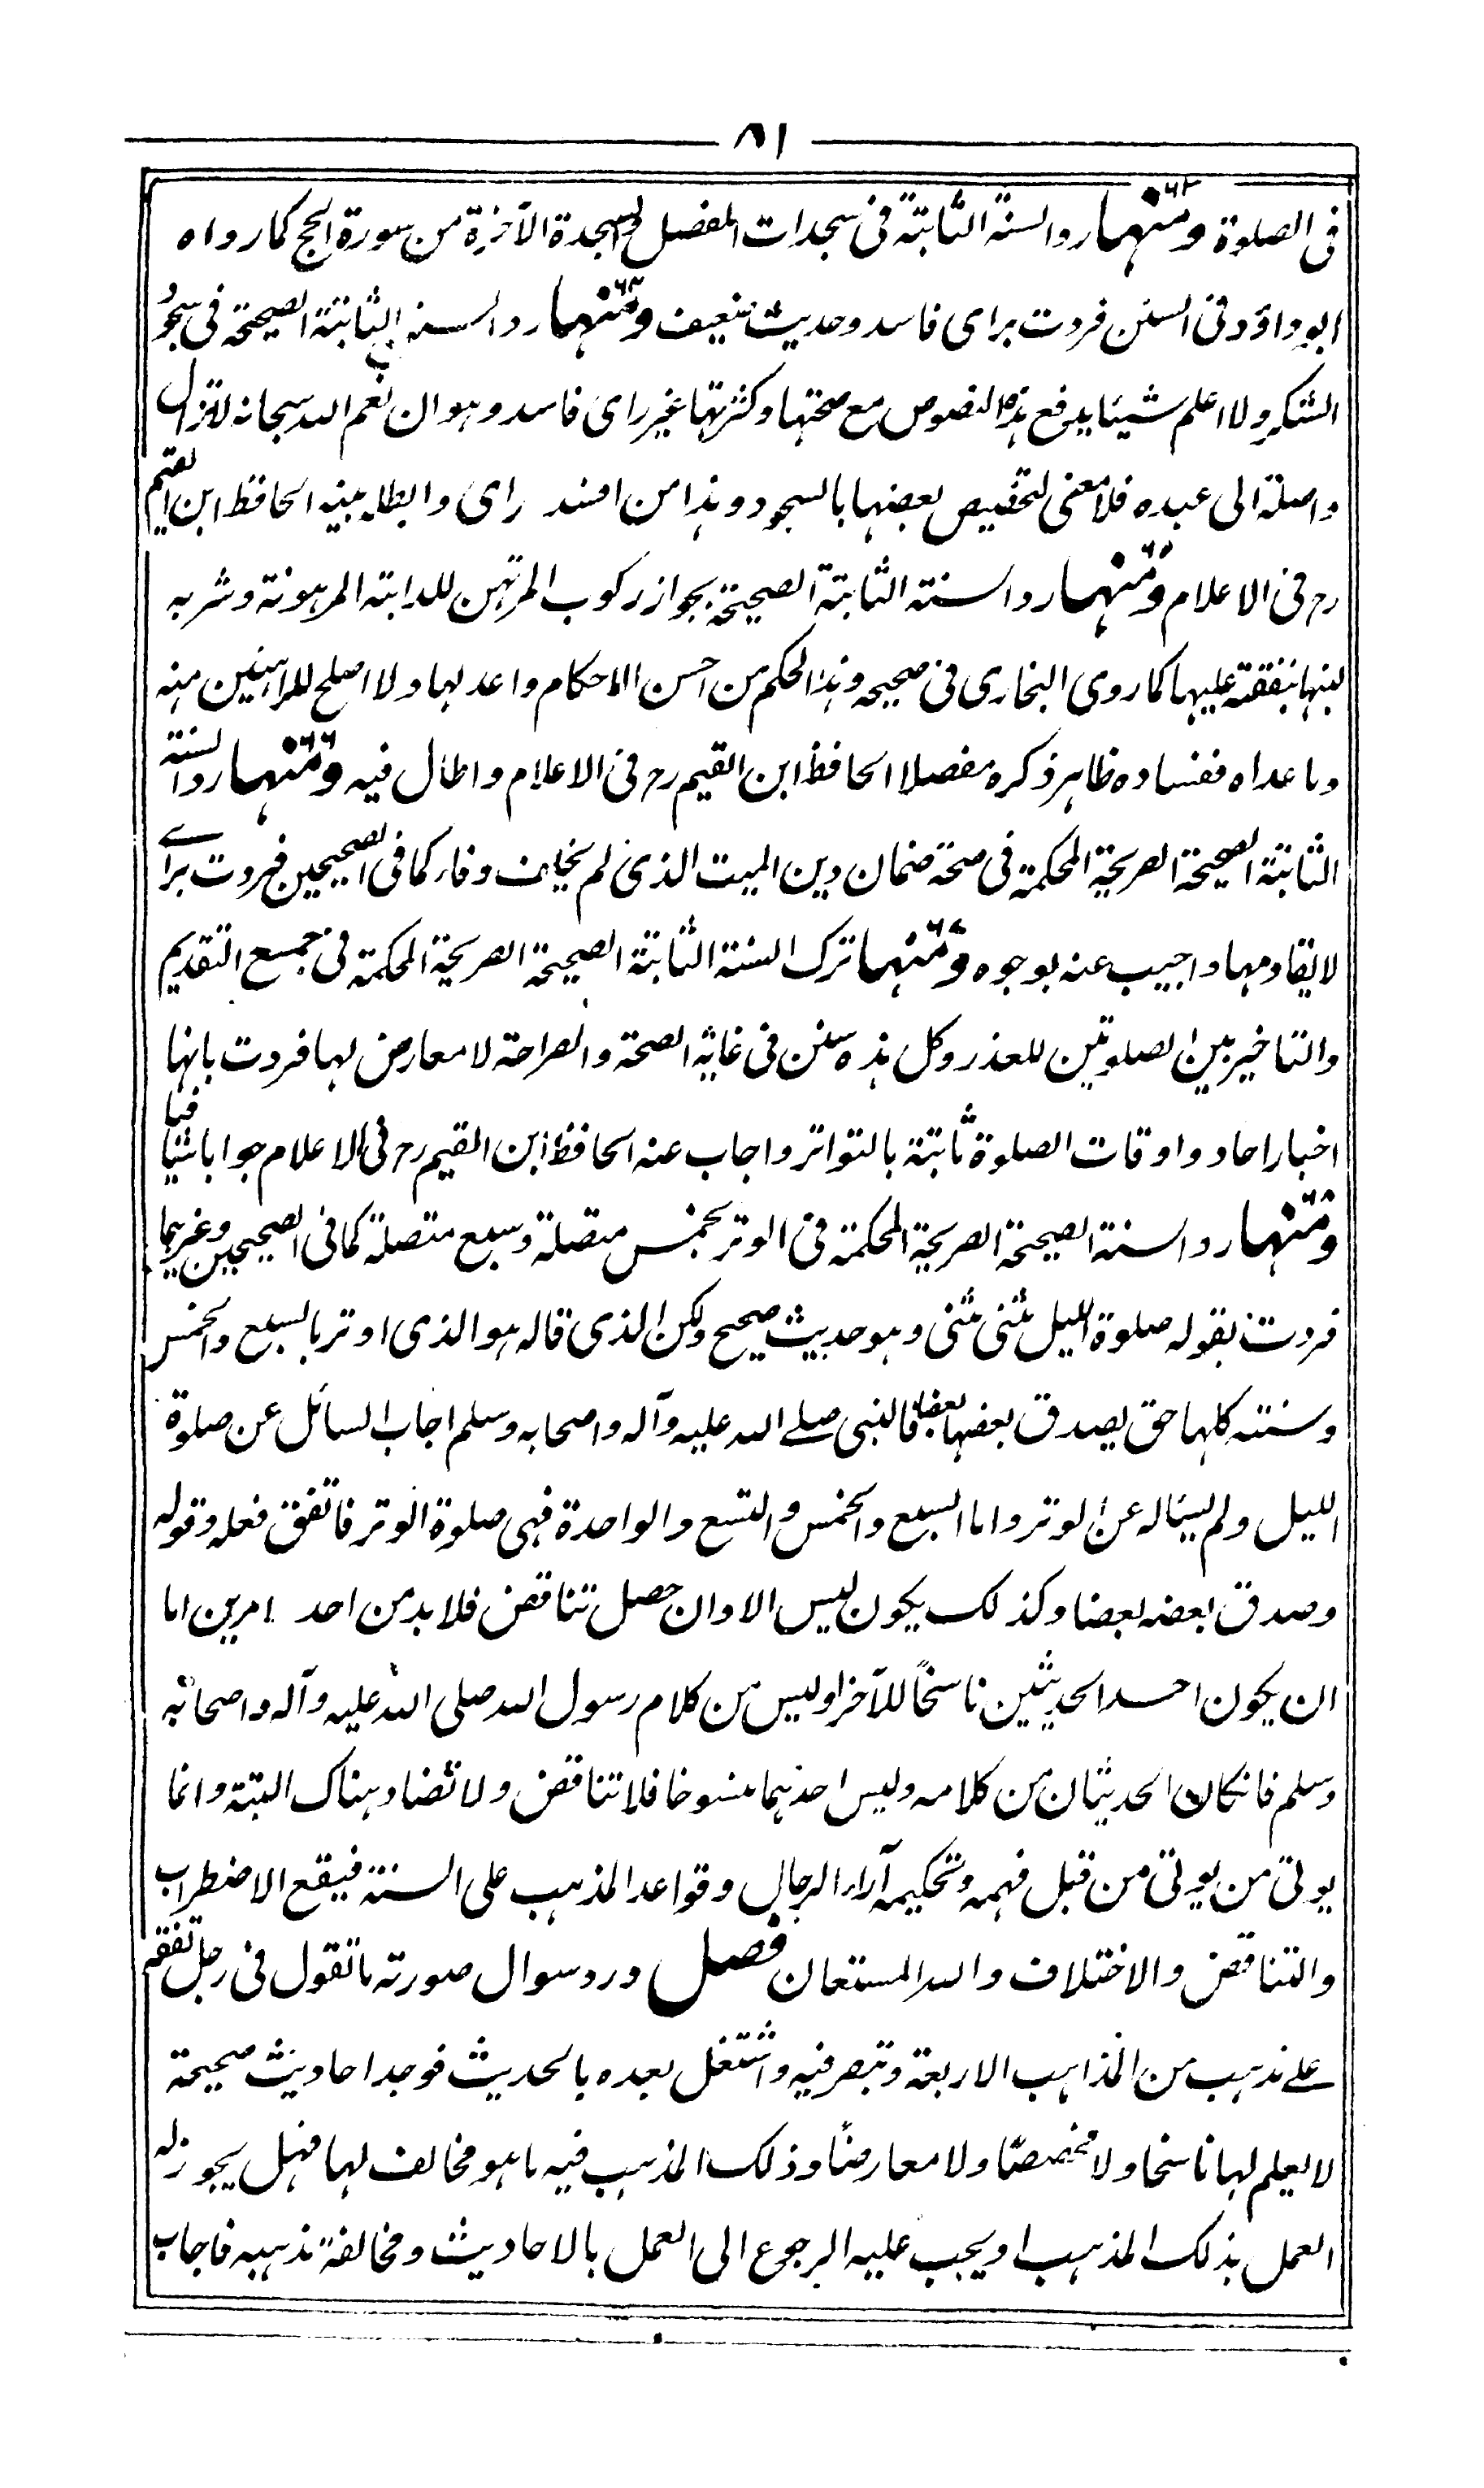 ٨١
فى الصلوة ومنها رد السنة الثابتة فى سجدات المفصل والسجدة الآخرة من سورة الحج كما رواه
ابو داؤد فى السنن فردت براى فاسد وحديث ضعيف ومنها رد السنة الثابتة الصحيحة فى سجود
الشكر ولا اعلم شيئا يدفع هذه النصوص مع صحتها وكثرتها غير راى فاسد وهو ان نعم الله سبحانه لا تزال
واصلة الى عبده فلا معنى لتخصيص بعضها بالسجود وهذا من افسد راى وابطله بينه الحافظ ابن القيم
رح فى الاعلام ومنها رد السنة الثابتة الصحيحة بجواز ركوب المرتهن للدابة المرهونة وشربه
لبنها بنفقته عليها كما روى البخارى فى صحيحه وهذا الحكم من احسن الاحكام واعدلها ولا اصلح للراهنين منه
وما عداه ففساده ظاهر ذكره مفصلا الحافظ ابن القيم رح فى الاعلام واطال فيه ومنها رد السنة
الثابتة الصحيحة الصريحة المحكمة فى صحة ضمان دين الميت الذى لم يخلف وفاء كما فى الصحيحين فردت براے
لا يقاومها واجيب عنه بوجوه ومنها ترك السنة الثابتة الصحيحة الصريحة المحكمة فى جمع التقديم
والتاخير بين الصلوتين للعذر وكل هذه سنن فى غاية الصحة والصراحة لا معارض لها فردت بانها
اخبار احاد واوقات الصلوة ثابتة بالتواتر واجاب عنه الحافظ ابن القيم رح فى الاعلام جوابا شافيا
ومنها رد السنة الصحيحة الصريحة المحكمة فى الوتر بخمس متصلة وسبع متصلة كما فى الصحيحين وغيرهما
فردت بقوله صلوة الليل مثنى مثنى وهو حديث صحيح ولكن الذى قاله هو الذى اوتر بالسبع والخمس
وسنته كلها حق يصدق بعضها بعضا فالنبى صلے الله عليه وآله واصحابه وسلم اجاب السائل عن صلوة
الليل ولم يساله عن الوتر واما السبع والخمس والتسع والواحدة فهى صلوة الوتر فاتفق فعله وقوله
وصدق بعضه بعضا وكذلك يكون ليس الا وان حصل تناقض فلا بد من احد امرين اما
ان يكون احد الحديثين ناسخاً للآخر او ليس من كلام رسول الله صلى الله عليه وآله واصحابه
وسلم فانكان الحديثان من كلامه وليس احدهما منسوخا فلا تناقض ولا تضاد هناك البتة وانما
يوتى من يوتى من قبل فهمه وتحكيمه آراء الرجال وقواعد المذهب على السنة فيقع الاضطراب
والتناقض والاختلاف والله المستعان فصل ورد سوال صورته ما تقول فى رجل تفقه
علے مذهب من المذاهب الاربعة وتبصر فيه واشتغل بعده بالحديث فوجد احاديث صحيحة
لا يعلم لها ناسخا ولا مخصصًا ولا معارضاً وذلك المذهب فيه ما هو مخالف لها فهل يجوز له
العمل بذلك المذهب او يجب عليه الرجوع الى العمل بالاحاديث ومخالفة مذهبه فاجاب